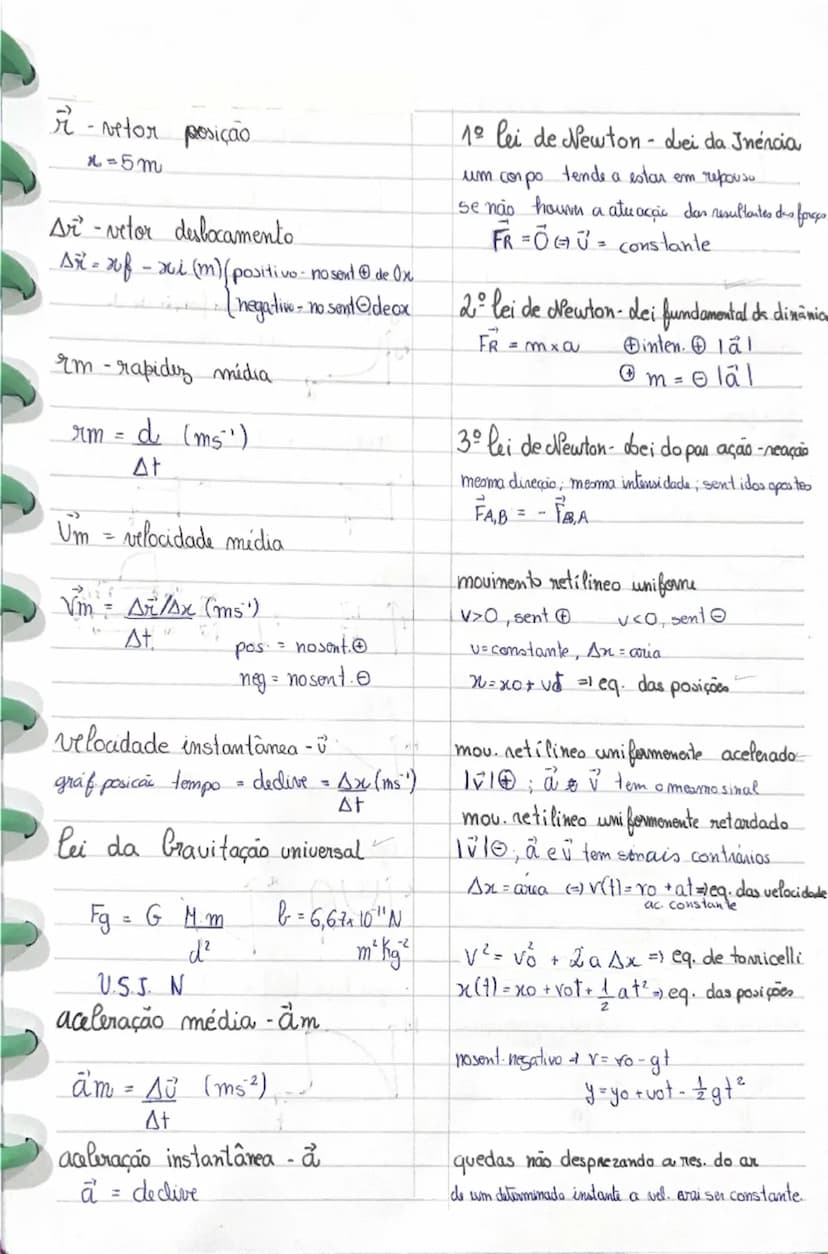 r⃗ - vetor posição
x = 5 m
Δr⃗ - vetor deslocamento
Δr⃗ = xf - xi (m) { positivo - no sent ⊕ de Ox
negativo - no sent ⊖ de ox
rm - rapidez média
rm = d/Δt (ms⁻¹)
V⃗m = velocidade média
V⃗m = Δr⃗/Δx (ms⁻¹)
Δt
pos. = no sent. ⊕
neg = no sent. ⊖
velocidade instantânea - v⃗
gráf. posição tempo = declive = Δx/Δt (ms⁻¹)
lei da Gravitação universal
Fg = G M.m/d²
G = 6,67x10⁻¹¹ N
m² Kg⁻²
U.S.I. N
aceleração média - a⃗m
a⃗m = Δv⃗/Δt (ms⁻²)
aceleração instantânea - a⃗
a⃗ = declive
1º lei de Newton - Lei da Inércia
um corpo tende a estar em repouso
se não houver a atuação das resultantes das forças
F⃗R = 0⃗ ⇔ v⃗ = constante
2º lei de Newton - Lei fundamental da dinâmica
F⃗R = m x a ⊕ inten. ⊕ |a⃗|
⊕ m = ⊖ |a⃗|
3º lei de Newton - Lei do par ação - reação
mesma direção; mesma intensidade; sentidos opostos
F⃗A,B = - F⃗B,A
movimento retilíneo uniforme
v>0, sent ⊕ v<0, sent ⊖
v = constante, Δx = área
x = x0 + vt ⇒ eq. das posições
mov. retilíneo uniformemente acelerado
|v⃗| ⊕ ; a⃗ e v⃗ tem o mesmo sinal
mov. retilíneo uniformemente retardado
|v⃗| ⊖ ; a⃗ e v⃗ tem sinais contrários
Δx = área ⇔ v(t) = v0 + at ⇒ eq. das velocidade
ac. constante
v² = v0² + 2 a Δx ⇒ eq. de torricelli
x(t) = x0 + v0t + 1/2 at² ⇒ eq. das posições
no sent. negativo → v = v0 - gt
y = y0 + v0t - 1/2 gt²
quedas não desprezando a res. do ar
de um determinado instante a vel. irá ser constante.